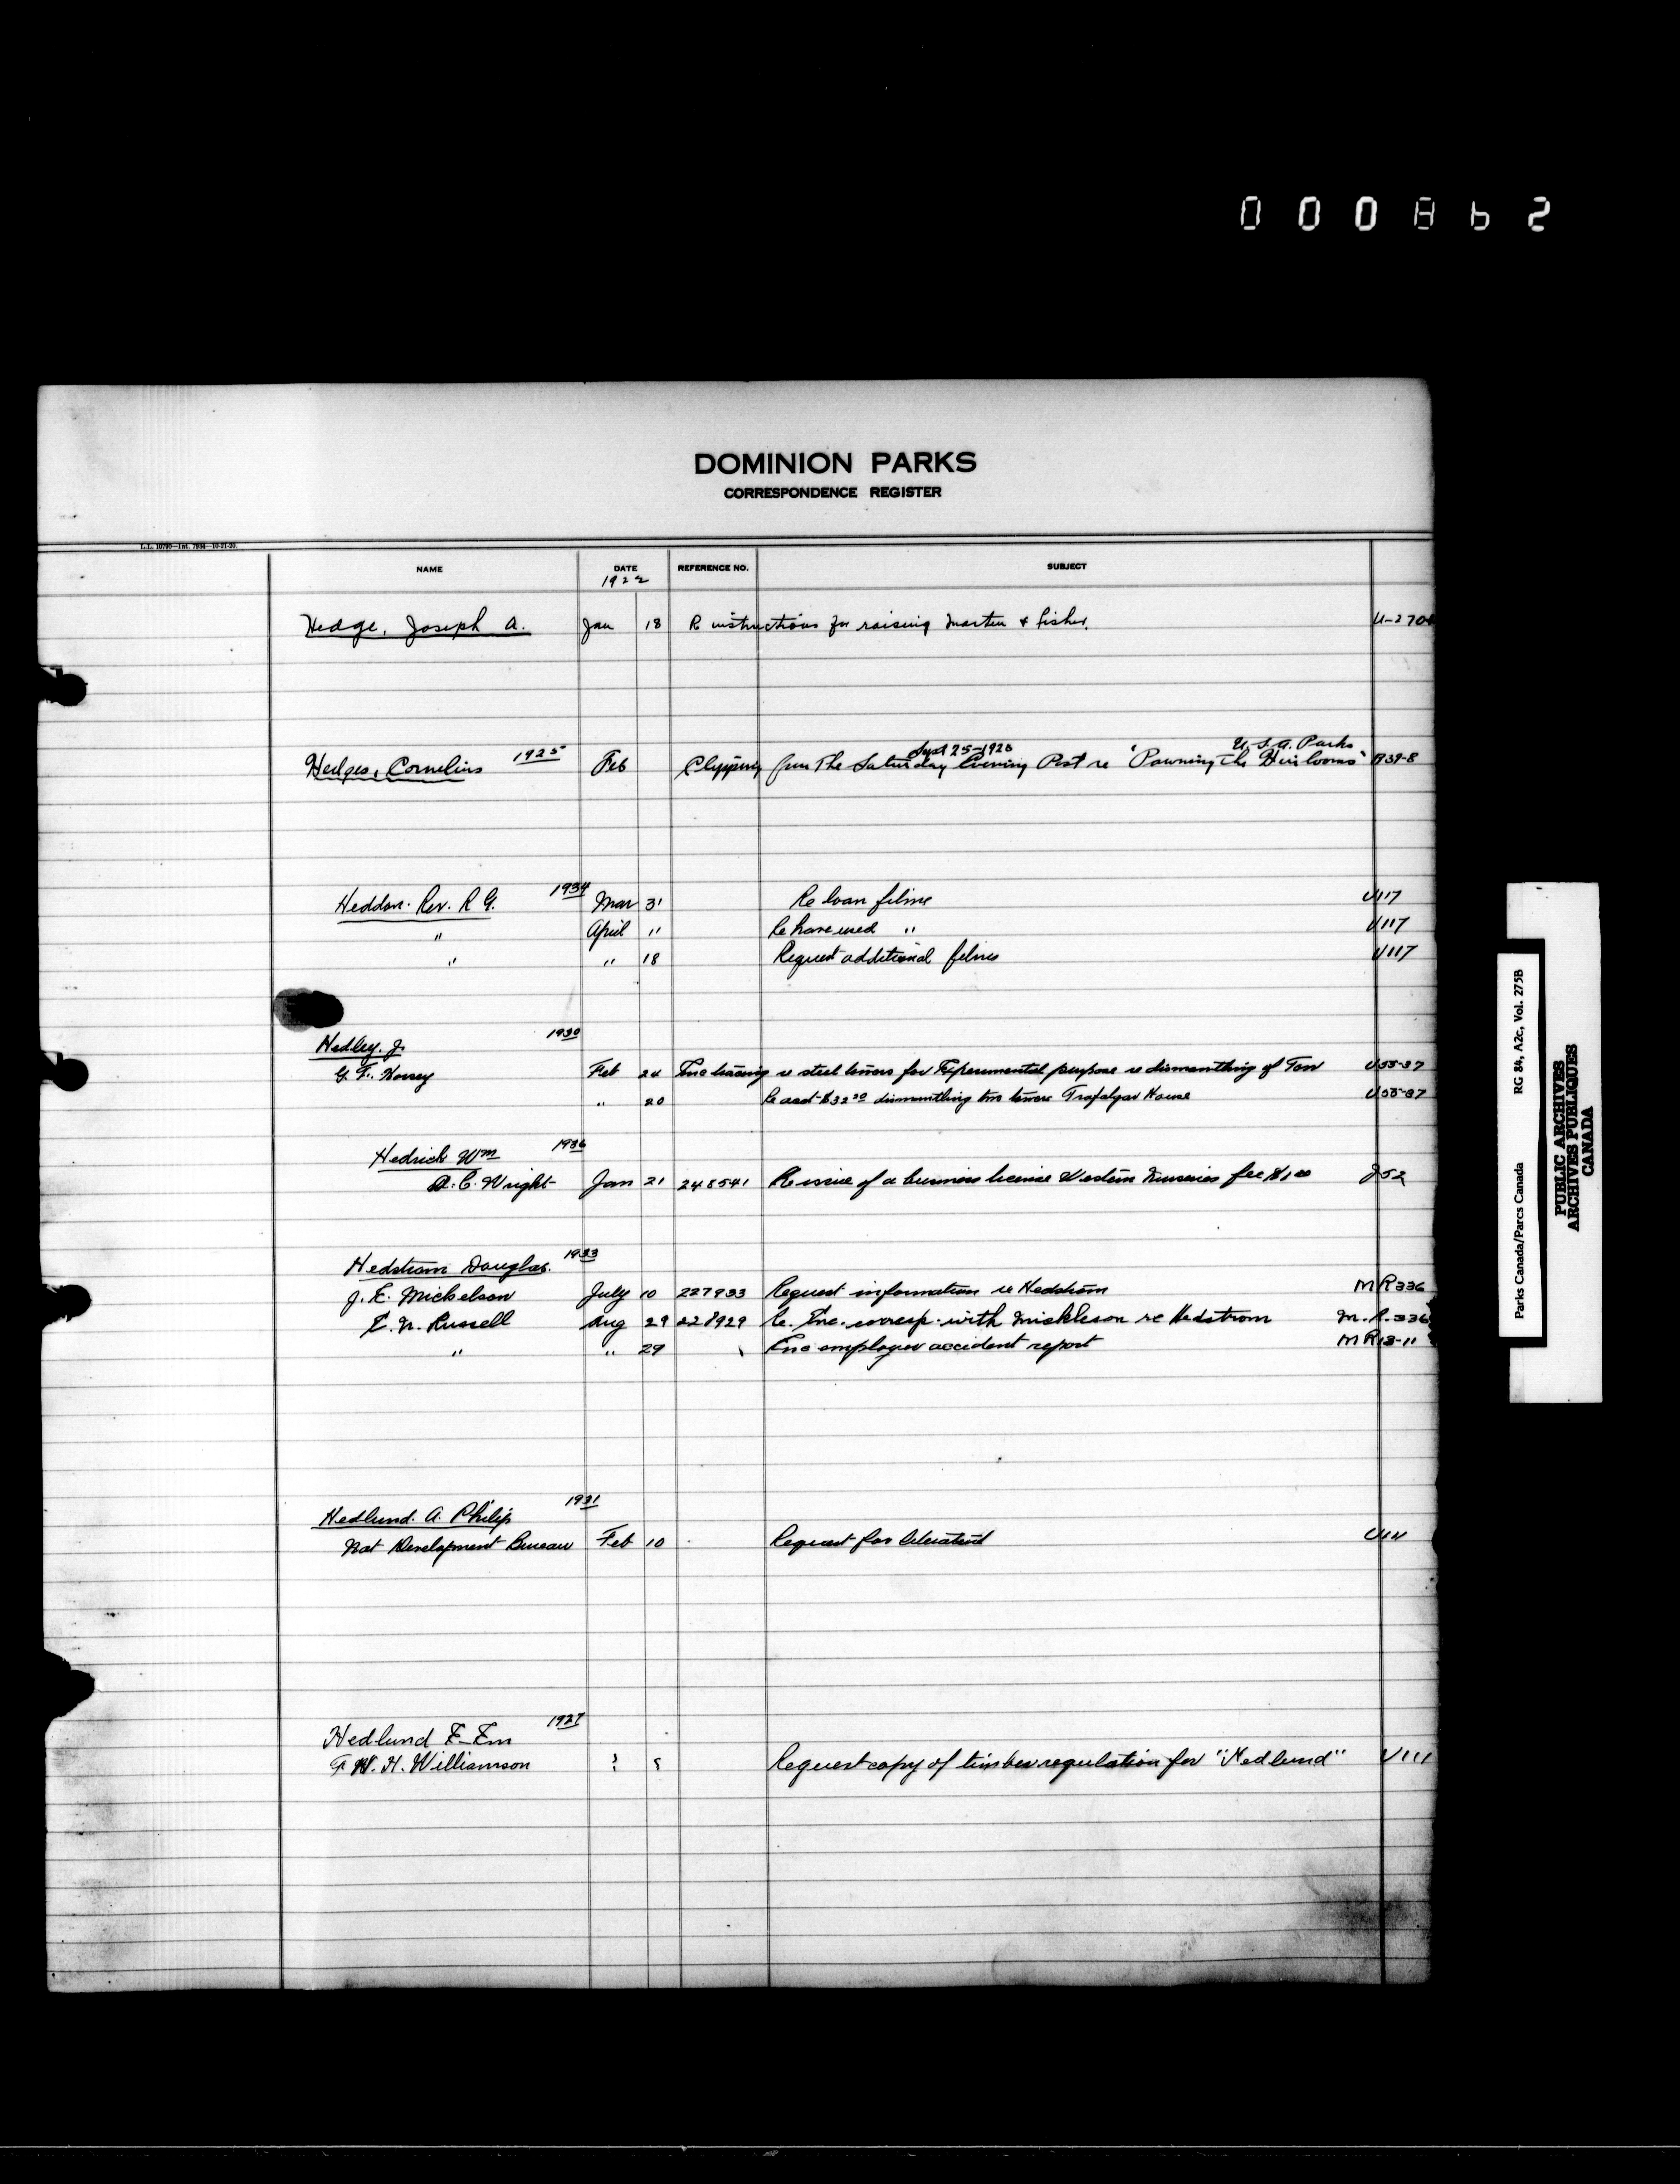 000862
DOMINION PARKS
CORRESPONDENCE REGISTER
L.L. 10790—Int. 7934—10-21-20.
NAME DATE REFERENCE NO. SUBJECT
1922
Hedge, Joseph A. Jan 18 R instructions for raising marten & fisher. U-270
Sept 25-1920 U.S.A. Parks
Hedges, Cornelius 1925 Feb Clipping from The Saturday Evening Post re "Pawning the Heirlooms" 39-8
Heddon. Rev. R G. 1934 Mar 31 Re loan films U117
" April " Re have used " U117
" " 18 Request additional films U117
Hedley. J. 1930
G. F. Horsey Feb 24 Enc tracing re steel towers for Experimental purpose re dismantling of U55-37
" 20 Re acct $32 dismantling two towers Trafalgar House U55-37
Hedrick Wm 1936
R. C. Wright Jan 21 248541 Re issue of a business license Western Nurseries fee $1.00 J52
Hedstrom Douglas. 1933
J. E. Mickelson July 10 227933 Request information re Hedstrom MR336
E. N. Russell Aug 29 228929 Re. Enc. corresp. with Mickleson re Hedstrom M.R.336
" " 29 Enc employer accident report MR13-11
Hedlund. A. Philip 1931
Nat Development Bureau Feb 10 Request for literature U14
Hedlund F-Em 1927
W. H. Williamson ? ? Request copy of timber regulation for "Hedlund" U111
Parks Canada/Parcs Canada RG 84, A2c, Vol. 275B
PUBLIC ARCHIVES
ARCHIVES PUBLIQUES
CANADA